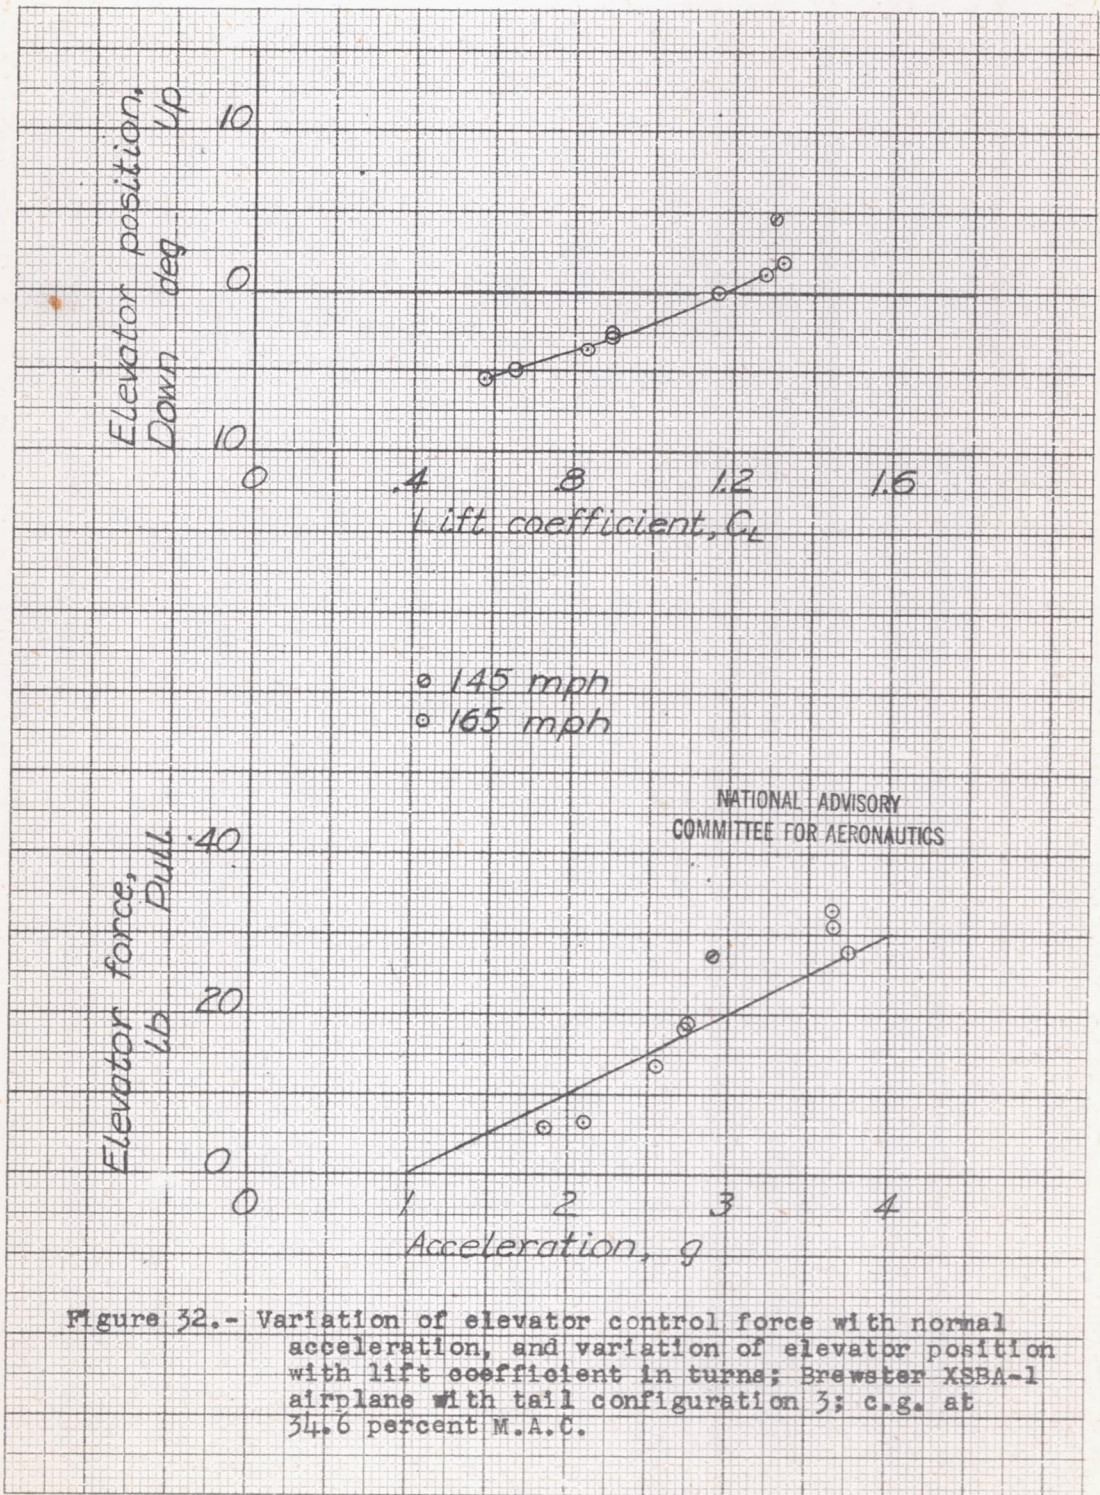 Elevator position,
Down deg Up
10
0
10
0 .4 .8 1.2 1.6
Lift coefficient, CL
145 mph
165 mph
NATIONAL ADVISORY
COMMITTEE FOR AERONAUTICS
Elevator force,
lb Pull
40
20
0
0 1 2 3 4
Acceleration, g
Figure 32.- Variation of elevator control force with normal
acceleration, and variation of elevator position
with lift coefficient in turns; Brewster XSBA-1
airplane with tail configuration 3; c.g. at
34.6 percent M.A.C.